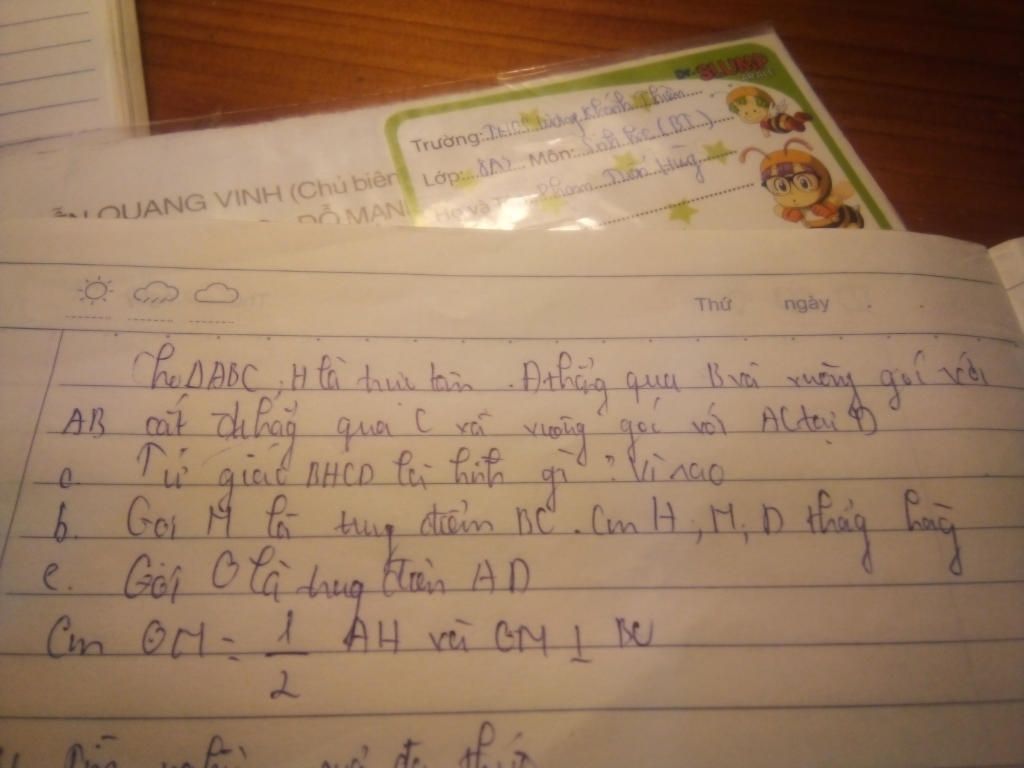 Dr. SLUMP
Trường: THCS Lương Khánh Thiện
Lớp: 8A2 Môn: Sinh học (BT)
Họ và Tên: Phạm Tiến Hùng
ỄN QUANG VINH (Chủ biên
ĐỖ MẠN
Thứ ngày
Cho ΔABC, H là trực tâm . Đthẳg qua B và vuông góc với
AB cắt đthẳg qua C và vuông góc với AC tại D
a. Tứ giác BHCD là hình gì ? Vì sao
b. Gọi M là trug điểm BC . Cm H, M, D thẳg hàg
c. Gọi O là trug điểm AD
Cm OM = 1/2 AH và OM ⊥ BC